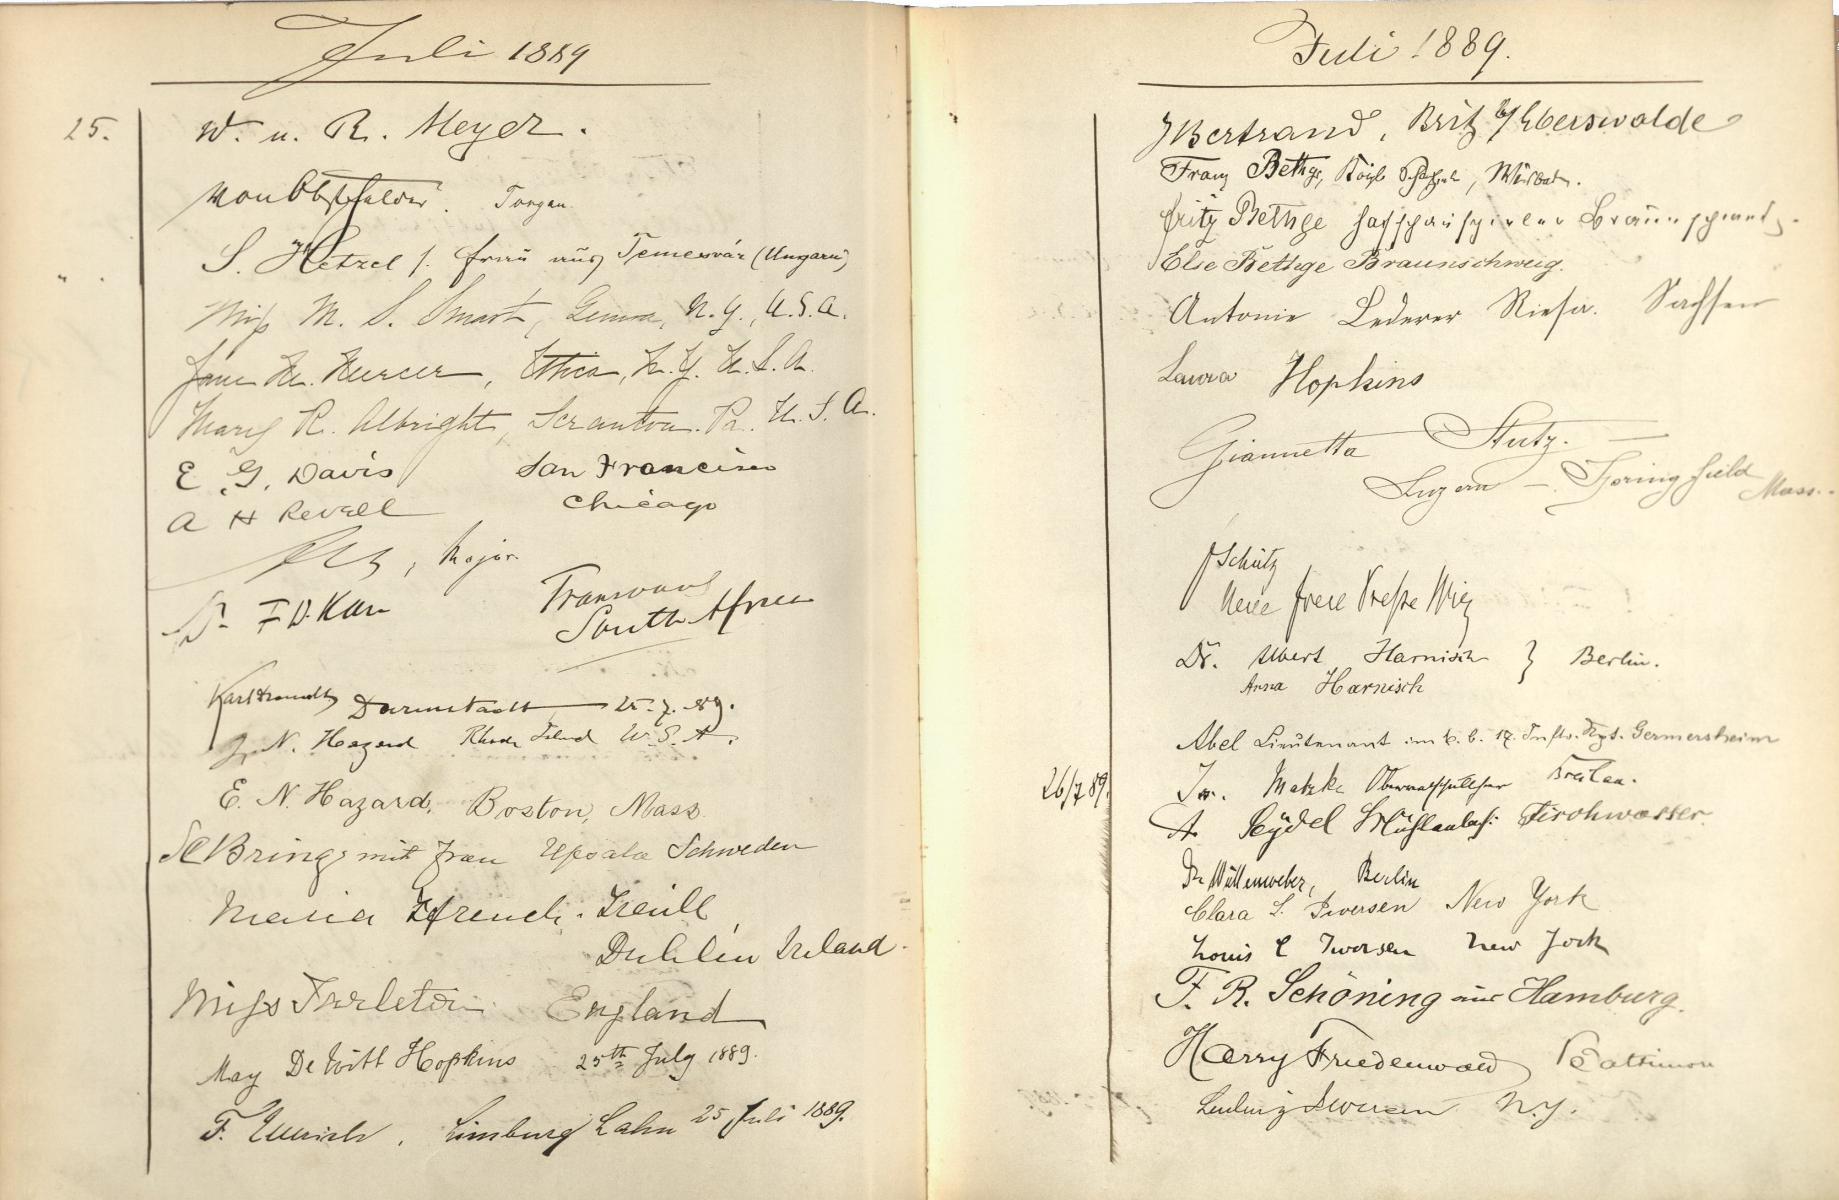 Juli 1889
25.
W. u. R. Meyer.
Torgau
S. Hetzel s. Frau aus Temesvár (Ungarn)
" "
Miss M. S. Smart, Geneva, N.Y., U.S.A.
Jane M. Mercer, Ithica, N.Y. U.S.A.
Mary R. Albright, Scranton. Pa. U.S.A.
E. G. Davis San Francisco
A H Revell Chicago
, Major.
Dr. F. D. Kan
Transvaal
South Africa
Karl Darmstadt 25.7.89.
J. N. Hazard Rhode Island U.S.A.
E. N. Hazard, Boston, Mass.
Bring mit Frau Upsala Schweden
Maria
Dublin Ireland.
Miss Tarleton England
May De Witt Hopkins 25th July 1889.
F. Limburg Lahn 25 Juli 1889.
Juli 1889.
J Bertrand, Britz b/Eberswalde
Franz Bethge, Kgl.
Fritz Bethge Hofschauspieler Braunschweig.
Else Bethge Braunschweig.
Antonie Lederer Riesa. Sachsen
Laura Hopkins
Giannetta Stutz. —
Luzern — Springfield Mass.
Schütz
Neue freie Presse Wien
Dr. Albert Harnisch } Berlin.
Anna Harnisch
Abel Lieutenant im k. b. 17. Inftr. Rgt. Germersheim
26/7 89.
Breslau.
A. Seydel
Dr Wüllenweber, Berlin
Clara L. Iwersen New York
Louis C Iwersen New York
F. R. Schöning aus Hamburg.
Harry Friedenwald Baltimore
Ludwig Iwersen N.Y.